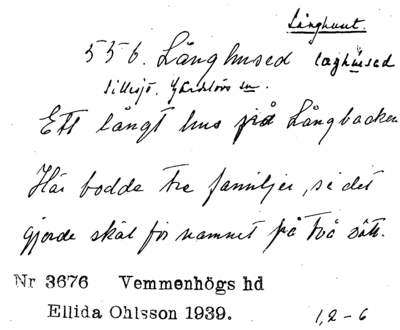 Långhuset.
556. Långhused laŋhúsed
Lillesjö.
Ett långt hus på Långbacken
Här bodde tre familjer, så det
gjorde skäl för namnet på två sätt.
Nr 3676 Vemmenhögs hd
Ellida Ohlsson 1939. 1,2-6